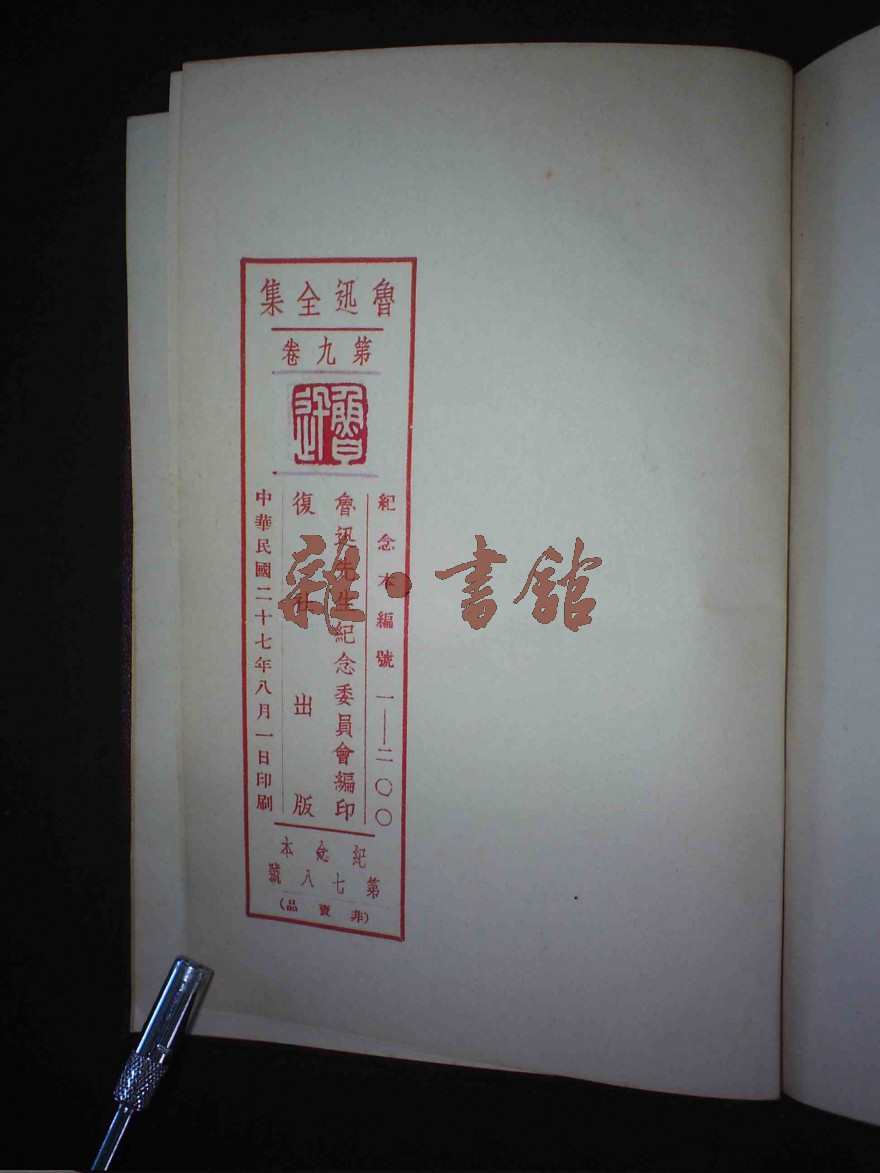 魯迅全集
第九卷
魯迅
紀念本編號 一—二〇〇
魯迅先生紀念委員會編印
復社出版
中華民國二十七年八月一日印刷
紀念本
第七八號
(非賣品)
雜·書館